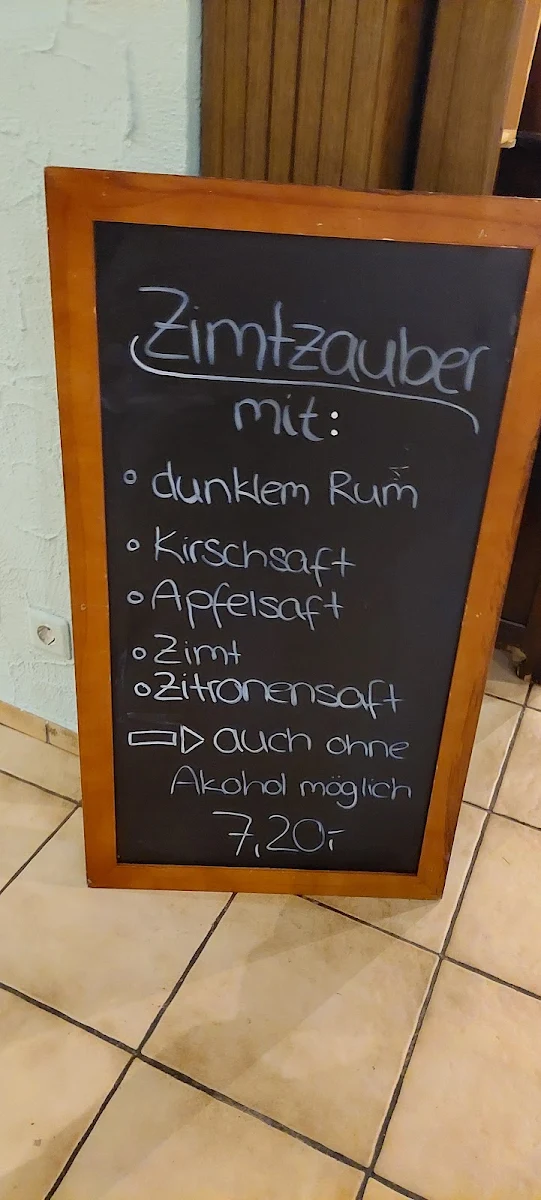 Zimtzauber
mit:
° dunklem Rum
° Kirschsaft
° Apfelsaft
° Zimt
° Zitronensaft
⇨ auch ohne
Akohol möglich
7,20,-